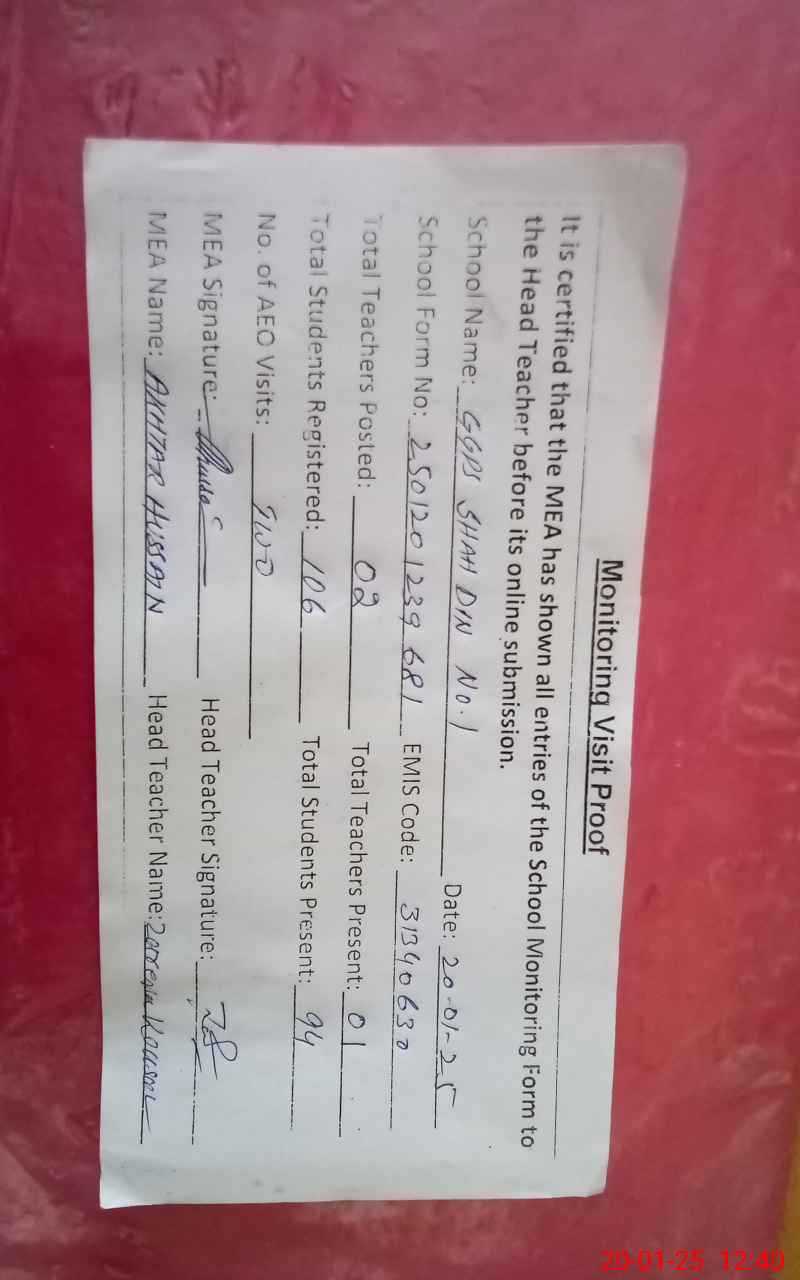 Monitoring Visit Proof
It is certified that the MEA has shown all entries of the School Monitoring Form to
the Head Teacher before its online submission.
School Name: GGPS SHAH DIN No.1 Date: 20-01-25
School Form No: 2501201239681 EMIS Code: 31340630
Total Teachers Posted: 02 Total Teachers Present: 01
Total Students Registered: 106 Total Students Present: 94
No. of AEO Visits: TWO
MEA Signature: Head Teacher Signature:
MEA Name: AKHTAR HUSSAIN Head Teacher Name: Kousar
20-01-25 12:40